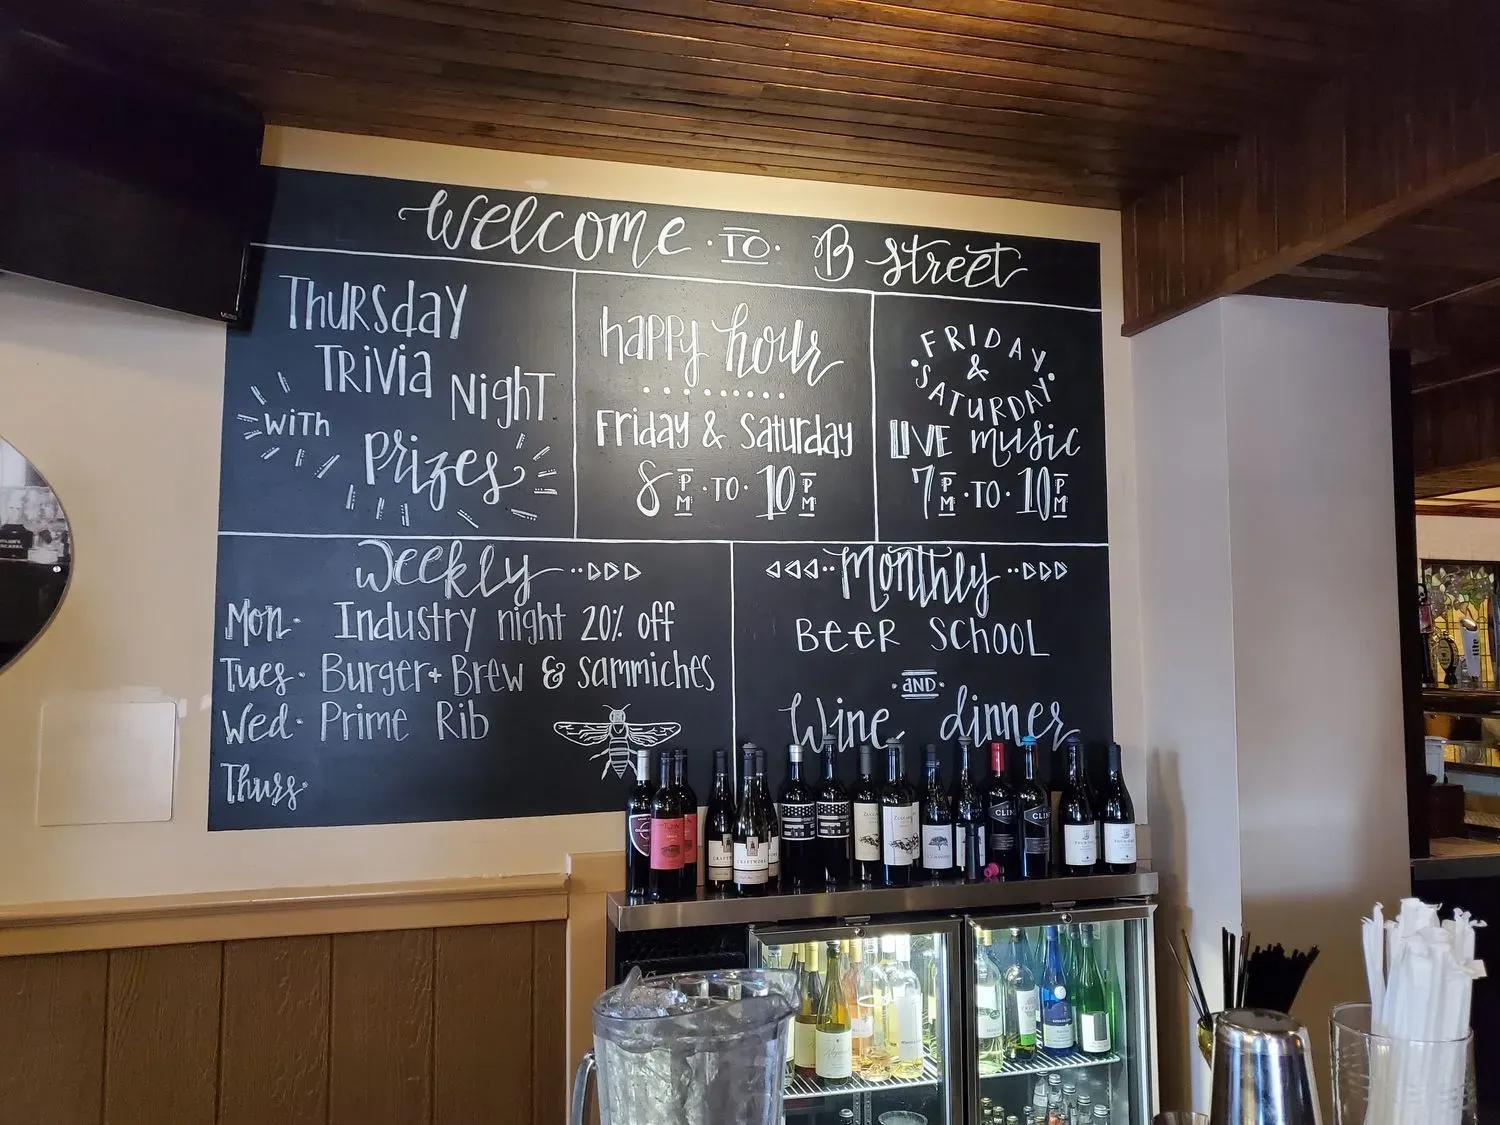 Welcome · TO · B Street
Thursday
Trivia Night
with
Prizes
happy hour
Friday & Saturday
8 PM · TO · 10 PM
FRIDAY
&
SATURDAY
LIVE music
7 PM · TO · 10 PM
Weekly
Mon· Industry night 20% off
Tues· Burger + Brew & Sammiches
Wed· Prime Rib
Thurs·
Monthly
BEER SCHOOL
· AND ·
Wine dinner
VIZIO
CRAFTWORK
CLINE
CLINE